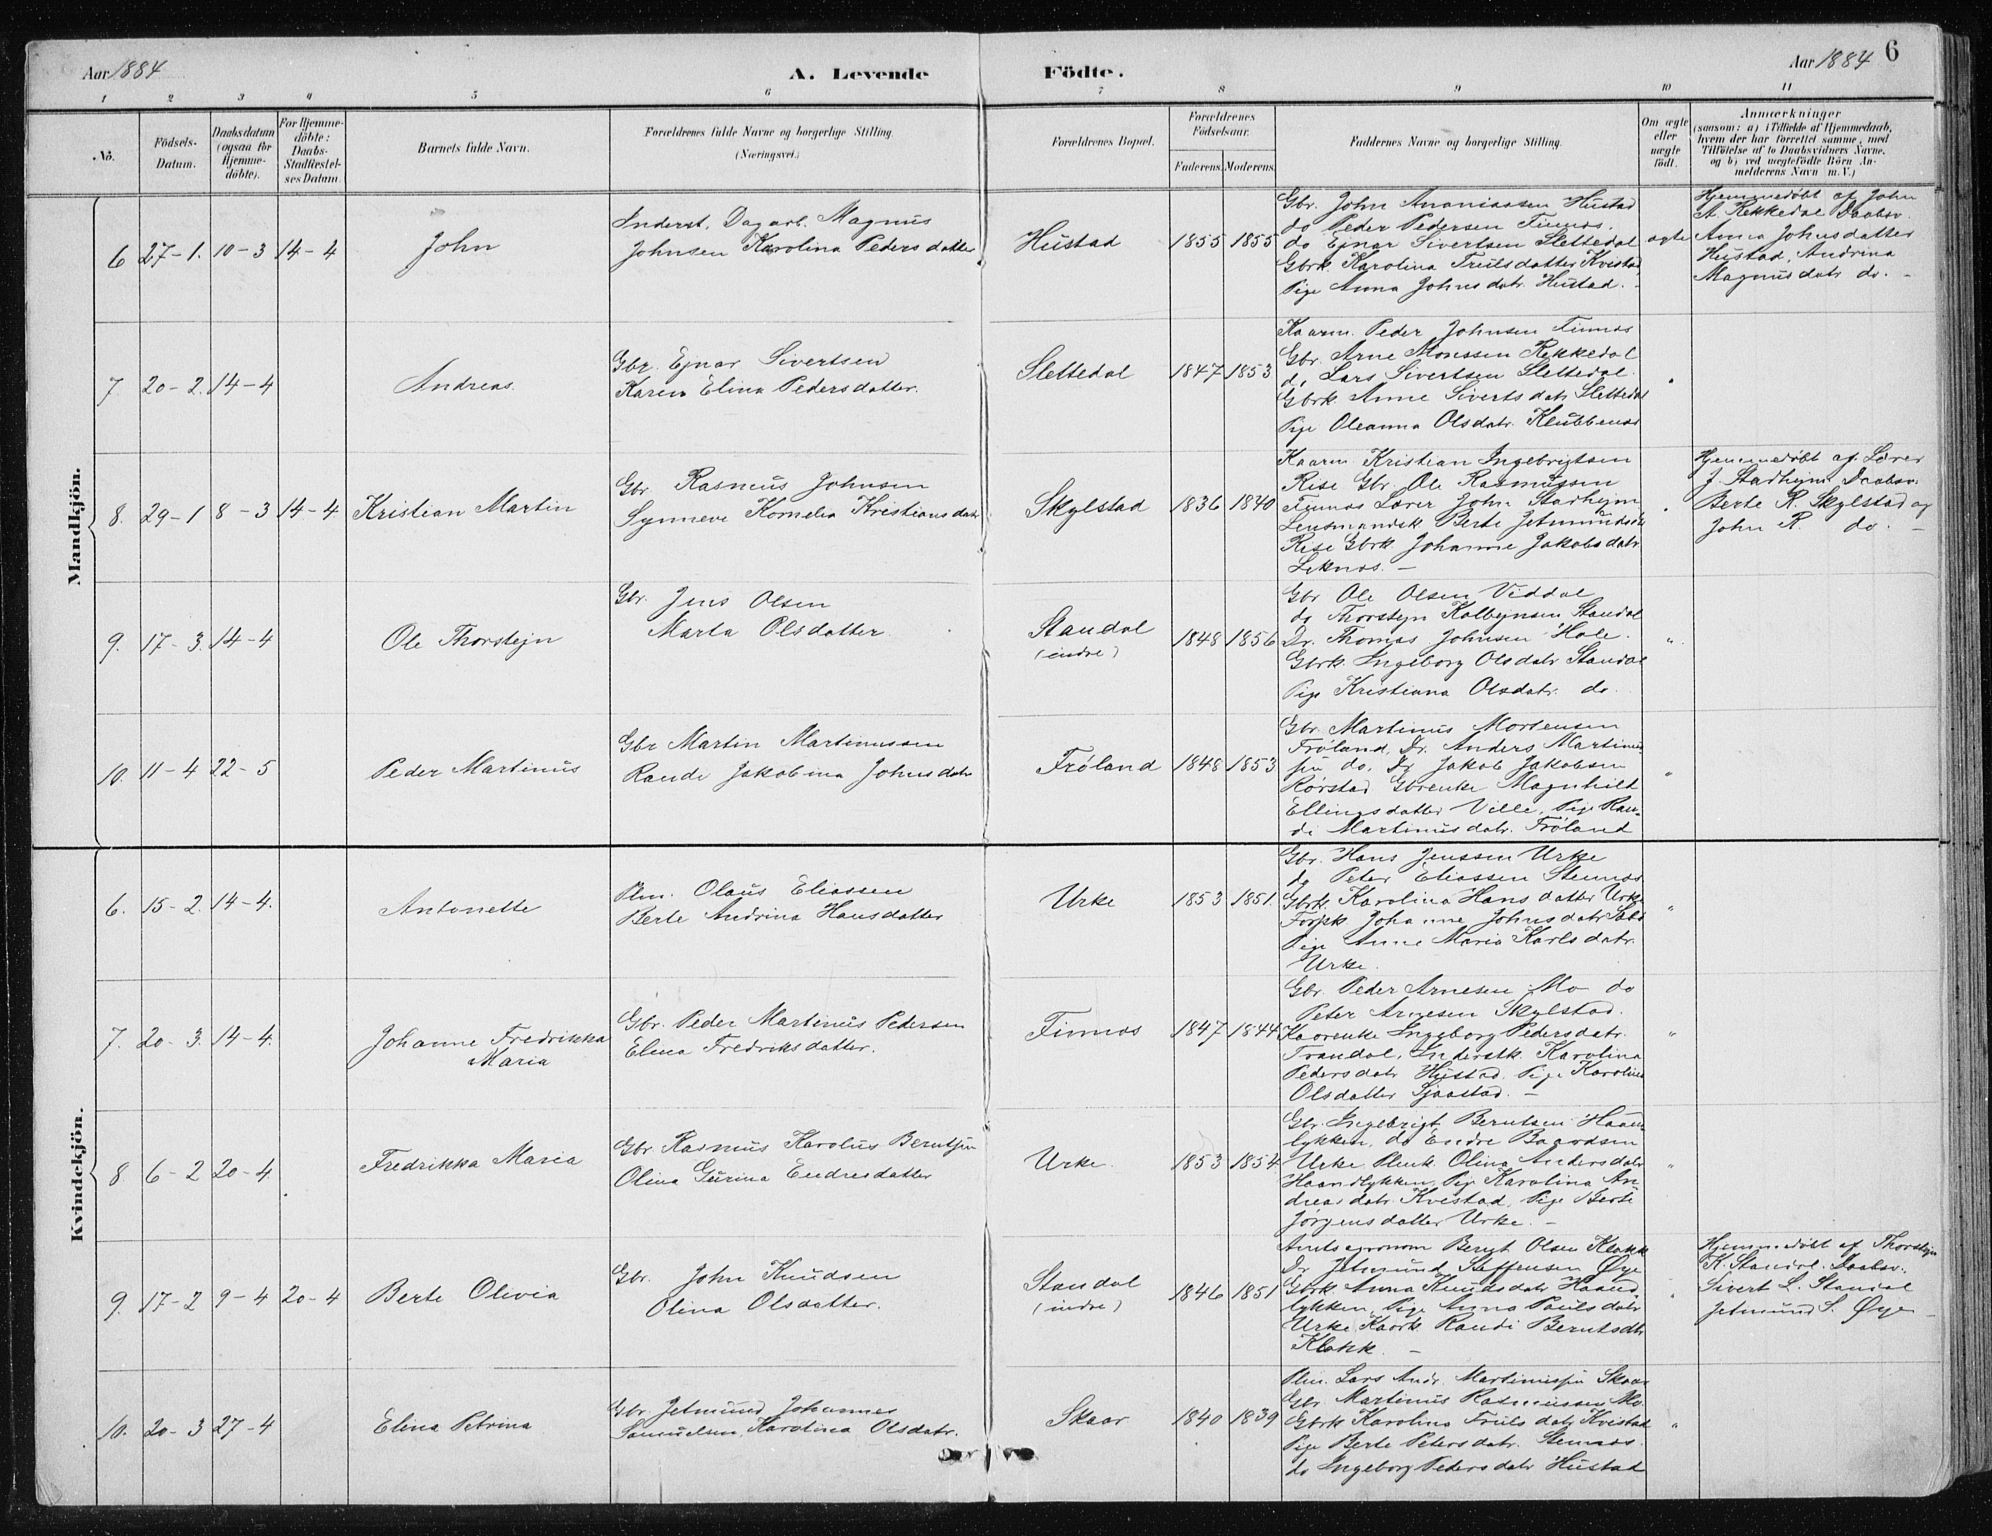 Aar 1884
A. Levende
Födte.
Aar 1884
6
1 2 3 4 5 6 7 8 9 10 11
No.
Födsels-
Datum.
Daabsdatum
(ogsaa for
Hjemme-
døbte).
For Hjemme-
döbte:
Daabs-
Stadfæstel-
ses Datum.
Barnets fulde Navn.
Forældrenes fulde Navne og borgerlige Stilling.
(Næringsvei.)
Forældrenes Bopæl.
Forældrenes
Födselsaar.
Faderens. Moderens.
Faddernes Navne og borgerlige Stilling.
Om ægte
eller
uægte
født.
Anmærkninger
(saasom: a) i Tilfælde af Hjemmedaab,
hvem der har forrettet samme, med
Tilföielse af to Daabsvidners Navne,
og b) ved uægtefödte Börn An-
melderens Navn m. V.)
Mandkjön.
6 27-1. 10-3 14-4
John
Inderst. Dagarb. Magnus
Johnsen Karolina Pedersdatter
Hustad
1855 1855
Gbr. John Ananiassen Hustad
do Peder Pedersen Finnes.
do Ejnar Sivertsen Slettedal
Gbrk Karolina Trulsdatter Kvistad
Pige Anna Johnsdatr. Hustad. -
ægte
Hjemmedøbt af John
A. Rekkedal Daabsv.
Anna Johnsdatter
Hustad, Andrina
Magnusdatr do. -
7. 20-2. 14-4
Andreas.
Gbr. Ejnar Sivertsen
Karen Elina Pedersdatter.
Slettedal
1847 1853
Kaarm. Peder Johnsen Finnes
Gbr. Arne Monssen Rekkedal
d. Lars Sivertsen Slettedal.
Gbrk Anne Sivertsdatr Slettedal
Pige Oleanna Olsdatr. Klubbenes
8. 29-1 8-3 14-4
Kristian Martin
Gbr. Rasmus Johnsen
Synneve Kornelia Kristiansdatr
Skylstad
1836 1840
Kaarm Kristian Ingebrigtsen
Rise Gbr. Ole Rasmussen
Finnes Lærer John Stadhejm
Lensmandsk Berte Jetmundsdtr
Rise Gbrk. Johanne Jakobsdatr
Leknes. -
Hjemmedøbt af Lærer
J. Stadhejm Daabsv.
Berte R. Skylstad og
John R. do. -
9. 17-3. 14-4
Ole Thorstejn
Gbr. Jens Olsen
Marta Olsdatter
Standal
(indre)
1848 1856
Gbr Ole Olsen Viddal
do Thorstejn Kolbejnsen Standal
Dr. Thomas Johnsen Hole.
Gbrk. Ingeborg Olsdatr Standal
Pige Kristiana Olsdatr. do.
"
10. 11-4 22-5
Peder Martinus
Gbr Martin Martinussen
Rande Jakobina Johnsdatr
Frøland
1848 1853
Gbr. Martinus Mortensen
Frøland, Dr. Anders Martinus-
sen do, Dr Jakob Jakobsen
Rørstad Gbrenke Magnhilt
Ellingsdatter Ville, Pige Ran-
di Martinusdatr. Frøland
"
Kvindekjön.
6. 15-2. 14-4.
Antonette
Plm. Olaus Eliassen
Berte Andrina Hansdatter
Urke
1853 1851.
Gbr. Hans Jenssen Urke
do Peter Eliassen Stennes
Gbrk. Karolina Hansdatter Urke
Johanne Johnsdatr
Pige Anne Maria Karlsdatr.
Urke.
"
7. 20-3. 14-4.
Johanne Fredrikka
Maria
Gbr. Peder Martinus Pedersen
Elena Fredriksdatter.
Finnes
1847 1844
Gbr. Peder Arnesen Mo do
Peter Arnesen Skylstad.
Kaarenke Ingeborg Pedersdatr.
Trandal, Inderstk. Karolina
Pedersdatr Hustad, Pige Karolina
Olsdatter Sjaastad. -
"
8. 6-2 20-4.
Fredrikka Maria
Gbr Rasmus Karolus Berntsen
Olina Gurina Endresdatter
Urke.
1853 1854.
Gbr. Ingebrigt Berntsen Haand-
lykken, do Endre Baardsen
Urke Plmk. Olina Andersdatr
Haandlykken, Pige Karolina An-
dreasdatr. Kvistad, Pige Berte
Jørgensdatter Urke. -
"
9. 17-2 9-4 20-4
Berte Olivia
Gbr. John Knudsen
Olina Olsdatter.
Standal
(indre)
1846 1851
Amtsagronom Bernt Olsen Klokk
Dr. Jetmund Steffensen Øye
Gbrk. Anna Knudsdatr Haand-
lykken, Pige Anna Paulsdatr
Urke Kaark. Randi Berntsdtr
Klokk. -
Hjemmedøbt af Thorstejn
K. Standal. Daabsv.
Sivert L. Standal
Jetmund S. Øye -
10. 20-3 27-4
Elina Petrina
Gbr. Jetmund Johannes
Samuelsen, Karolina Olsdatr.
Skaar
1840 1839
Plm. Lars Andr. Martinussen Skaar
Gbr Martinus Rasmussen Mo.
Gbrk Karolina Trulsdatr Kvistad
Pige Berte Petersdatr. Stennes.
do Ingeborg Pedersdatr Hustad
"